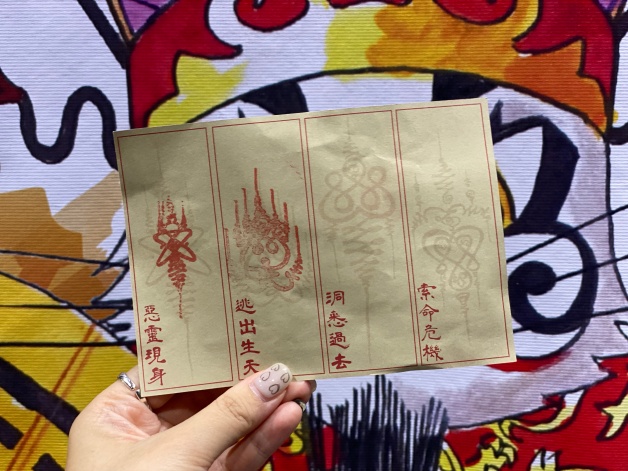 惡靈現身
逃出生天
洞悉過去
索命危機